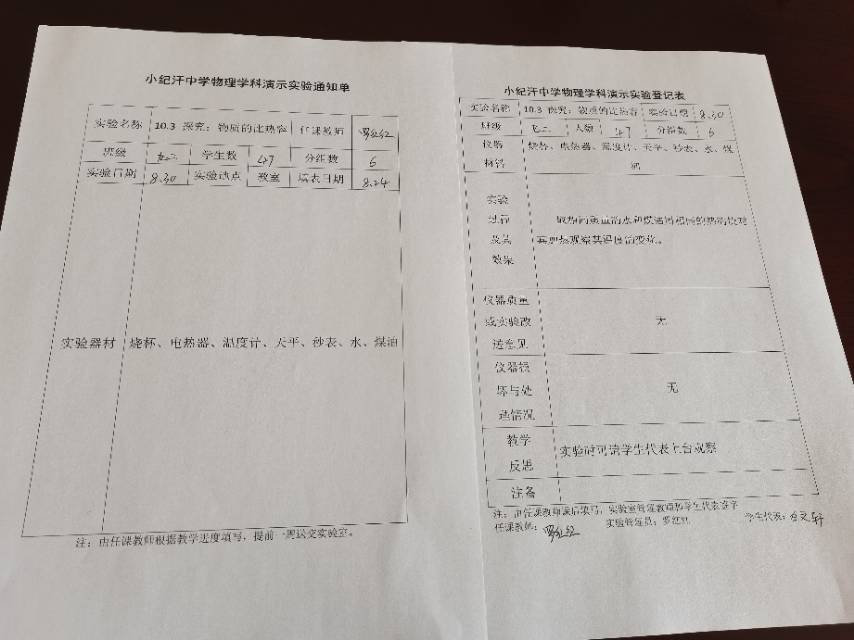 小纪汗中学物理学科演示实验通知单
实验名称 10.3 探究：物质的比热容 任课教师 罗红红
班级 九二 学生数 47 分组数 6
实验日期 8.30 实验地点 教室 填表日期 8.24
实验器材 烧杯、电热器、温度计、天平、秒表、水、煤油
注：由任课教师根据教学进度填写，提前一周送交实验室。
小纪汗中学物理学科演示实验登记表
实验名称 10.3 探究：物质的比热容 实验日期 8.30
班级 九二 人数 47 分组数 6
仪器 烧杯、电热器、温度计、天平、秒表、水、煤
材料 油
实验
过程 取相同质量的水和煤油用相同的热源
及其 观察其温度的变化。
效果
仪器质量
或实验改 无
进意见
仪器损
坏与处 无
理情况
教学
反思 实验时可请学生代表上台观察
注备
注：由任课教师课后填写，实验室管理教师和学生代表签字
任课教师：罗红红 实验管理员：罗红红 学生代表：